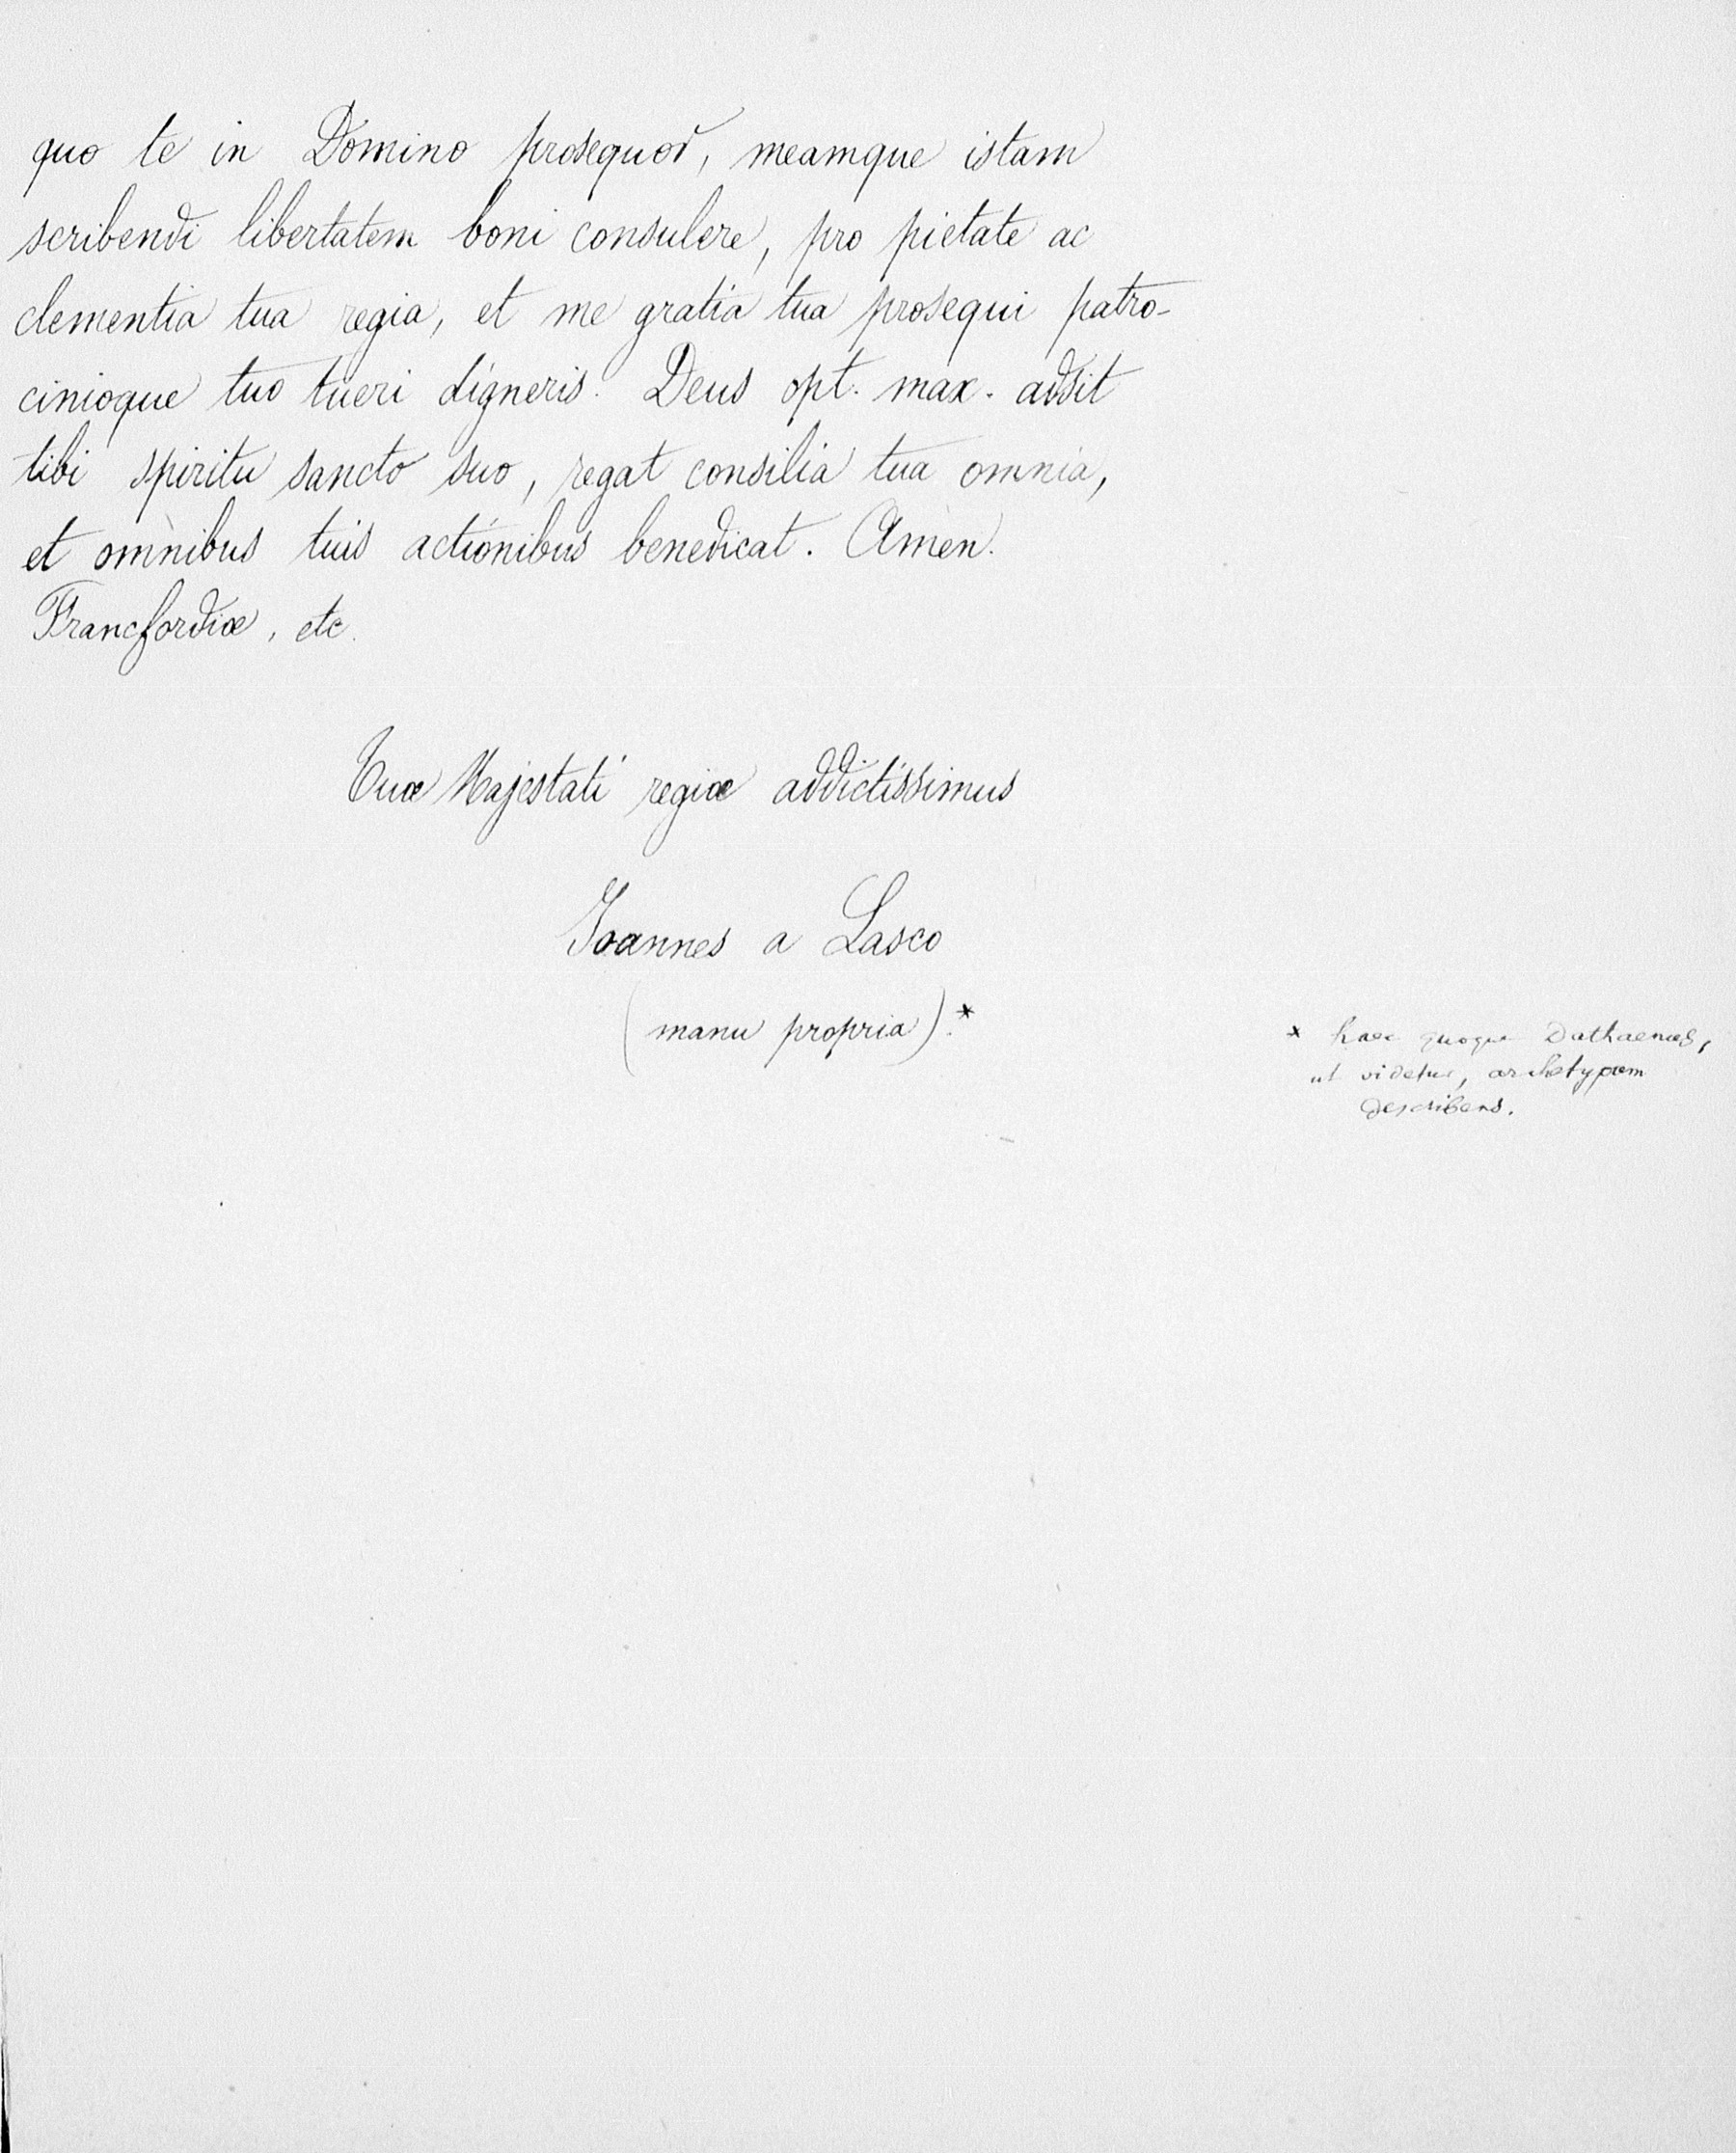 quo te in Domino prosequor, meamque istam
scribendi libertatem boni consulere, pro pietate ac
clementia tua regia, et me gratia tua prosequi patro-
cinioque tuo tueri digneris. Deus opt. max. adsit
tibi spiritu sancto suo, regat consilia tua omnia,
et omnibus tuis actionibus benedicat. Amen.
Francfordiæ, etc.
Tuæ Majestati regiæ addictissimus
Joannes a Lasco
(manu propria).*
* haec quoque Dathaenus,
ut videtur, archetypum
describens.